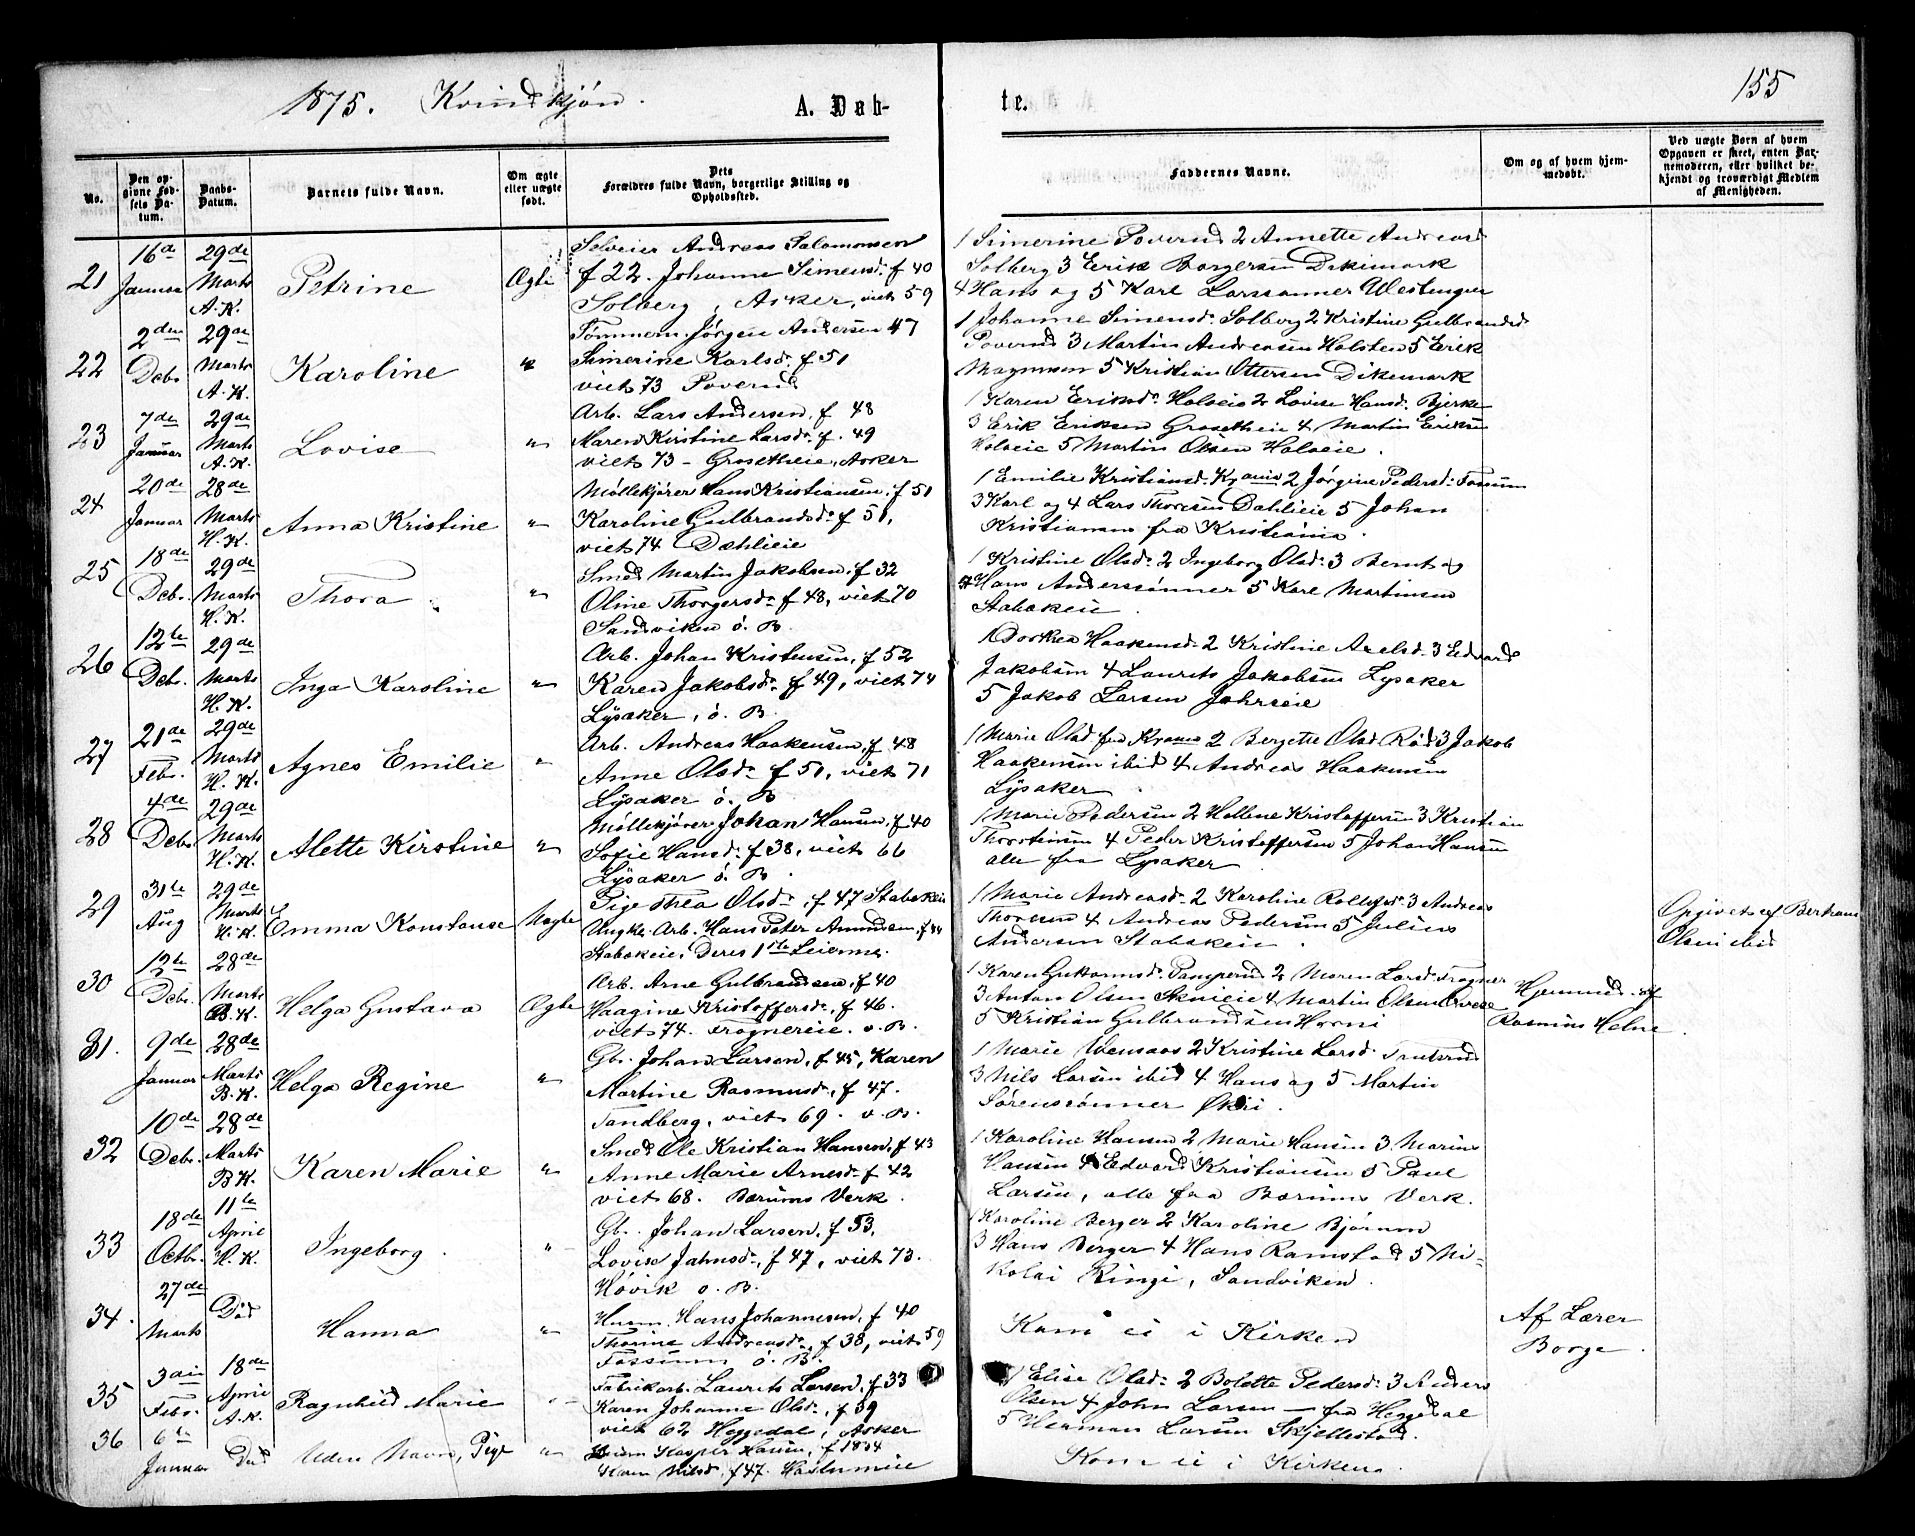 1875. Kvindkjøn.
A. Døb-
te.
155
No.
Den op-
givne Fød-
sels Da-
tum.
Daabs-
Datum.
Barnets fulde Navn.
Om ægte
eller uægte
født.
Dets
Forældres fulde Navn, borgerlige Stilling og
Opholdssted.
Faddernes Navne.
Om og af hvem hjem-
medøbt.
Ved uægte Børn af hvem
Opgaven er skeet, enten Bar-
nemoderen, eller hvilket be-
kjendt og troværdigt Medlem
af Menigheden.
21
16de
Januar
29de
Marts
A.K.
Petrine
Ægte
Selveier Andreas Salomonsen
f 22. Johanne Simensd. f 40
Solberg, Asker, viet 59
1 Simerine Poverud 2 Annette Andreasd
Solberg 3 Erik Borgersen Dikemark
4 Hans og 5 Karl Larssønner Westengen
22
2den
Debr
29de
Marts
A.K.
Karoline
"
Tømmerm. Jørgen Andersen 47
Simerine Karlsd. f 51
viet 73 Poverud
1 Johanne Simensd. Solberg 2 Kristine Gulbrandsd.
Poverud 3 Martin Andreasen Holsten 5 Erik
Magnusen 5 Kristian Ottersen Dikemark
23
7de
Januar
29de
Marts
A.K.
Lovise
"
Arb. Lars Andersen, f 48
Maren Kirstine Larsd. f. 49
viet 73 - Grosetheie, Asker
1 Karen Eriksd. Holveie 2 Lovise Hansd. Bjerke
3 Erik Eriksen Grosetheie 4 Martin Eriksen
Holveie 5 Martin Olsen Holveie.
24
20de
Januar
28de
Marts
H.K.
Anna Kristine
"
Møllekjører Hans Kristiansen, f 51
Karoline Gulbrandsd. f 51,
viet 74 Dæhlieie
1 Emilie Kristiansd. 2 Jørgine Pedersd. Fossum
3 Karl og 4 Lars Thoresen Dahlieie 5 Johan
Kristiansen fra Kristiania.
25
18de
Debr.
29de
Marts
H.K.
Thora
"
Smed Martin Jakobsen, f 32
Oline Thorgersd. f 48, viet 70
Sandviken ø. B.
1 Kristine Olsd. 2 Ingeborg Olsd. 3 Bernt og
4 Hans Anderssønner 5 Karl Martinsen
Stabækeie.
26
12te
Debr.
29de
Marts
H.K.
Inga Karoline
"
Arb. Johan Kristensen, f 52
Karen Jakobsd. f 49, viet 74
Lysaker, ø. B.
1 Dorthea Haakensd. 2 Kristine Axelsd. 3 Edvard
Jakobsen 4 Laurits Jakobsen Lysaker
5 Jakob Larsen
27
21de
Febr.
29de
Marts
H.K.
Agnes Emilie
"
Arb. Andreas Haakensen, f 48
Anne Olsd. f 51, viet 71
Lysaker ø. B.
1 Marie Olsd fra 2 Bergette Olsd Rød 3 Jakob
Haakensen ibid 4 Andreas Haakensen
Lysaker.
28
4de
Debr.
29de
Marts
H.K.
Alette Kirstine
"
Møllekjører Johan Hansen, f 40
Sofie Hansd. f 38, viet 66
Lysaker ø. B.
1 Marie Pedersen 2 Hellene Kristoffersen 3 Kristian
Thorstensen 4 Peder Kristoffersen 5 Johan Hansen
alle fra Lysaker.
29
31te
Aug
29de
Marts
H.K.
Emma Konstanse
Uægte
Pige Thea Olsd., f 47 Stabækeie
Ungk. Arb. Hans Peter Amundsen, f 44
Stabækeie, Deres 1ste Leierm.
1 Marie Andreasd. 2 Karoline Rolfsd. 3 Andreas
Thoresen 4 Andreas Pedersen 5 Julius
Andersen Stabækeie.
Opgivet af Bertram
Olsen ibid
30
12te
Debr.
28de
Marts
B.K.
Helga Gustava
Ægte
Arb. Arne Gulbrandsen, f 40
Haagine Kristoffersd. f 46.
viet 74. Frognereie. v. B.
1 Karen Guttormsd. 2 Maren Larsd. Frogner
3 Anton Olsen 4 Martin Olsen
5 Kristian Gulbrandsen Horni
Hjemmed. af
Rasmus Helne.
31.
9de
Januar
28de
Marts
B.K.
Helga Regine
"
Gb. Johan Larsen, f 45, Karen
Martine Rasmusd. f 47.
Tandberg, viet 69. v. B.
1 Marie Wensaas 2 Kristine Larsd.
3 Nils Larsen ibid 4 Hans og 5 Martin
Sørenssønner Økri.
32
10de
Debr.
28de
Marts
B.K.
Karen Marie
"
Smed Ole Kristian Hansen, f 43
Anne Marie Arnesd. f 42
viet 68. Bærums Verk.
1 Karoline Hansen 2 Marie Hansen 3 Marius
Hansen 4 Edvard Kristiansen 5 Paul
Larsen, alle fra Bærums Verk.
33
18de
Octbr.
11te
April
H.K.
Ingeborg.
"
Gb. Johan Larsen, f 53,
Lovise Jahnsd., f 47, viet 73.
Høvik ø. B.
1 Karoline Berger 2 Karoline Bjørnson
3 Hans Berger 4 Hans Ramstad 5 Ni-
kolai Ringi, Sandviken.
34.
27de
Marts
Død
Hanna
"
Husm. Hans Johannesen, f 40
Thorine Andreasd., f 38, viet 59
Fossum ø. B.
Kom ei i Kirken
Af Lærer
Borge.
35
3die
Febr.
18de
April
A.K.
Ragnhild Marie
"
Fabrikarb. Laurits Larsen, f 33
Karen Johanne Olsd., f 39
viet 62 Heggedal, Asker
1 Elise Olsd. 2 Bolette Pedersd. 3 Anders
Olsen 4 John Larsen — fra Heggedal
5 Herman Larsen Skjellestad.
36
6te
Januar
Død
Uden Navn, Pige
"
Kasper Hansen, f 1834
Karen Nilsd., f 47. Haslumeie
Kom ei i Kirken.